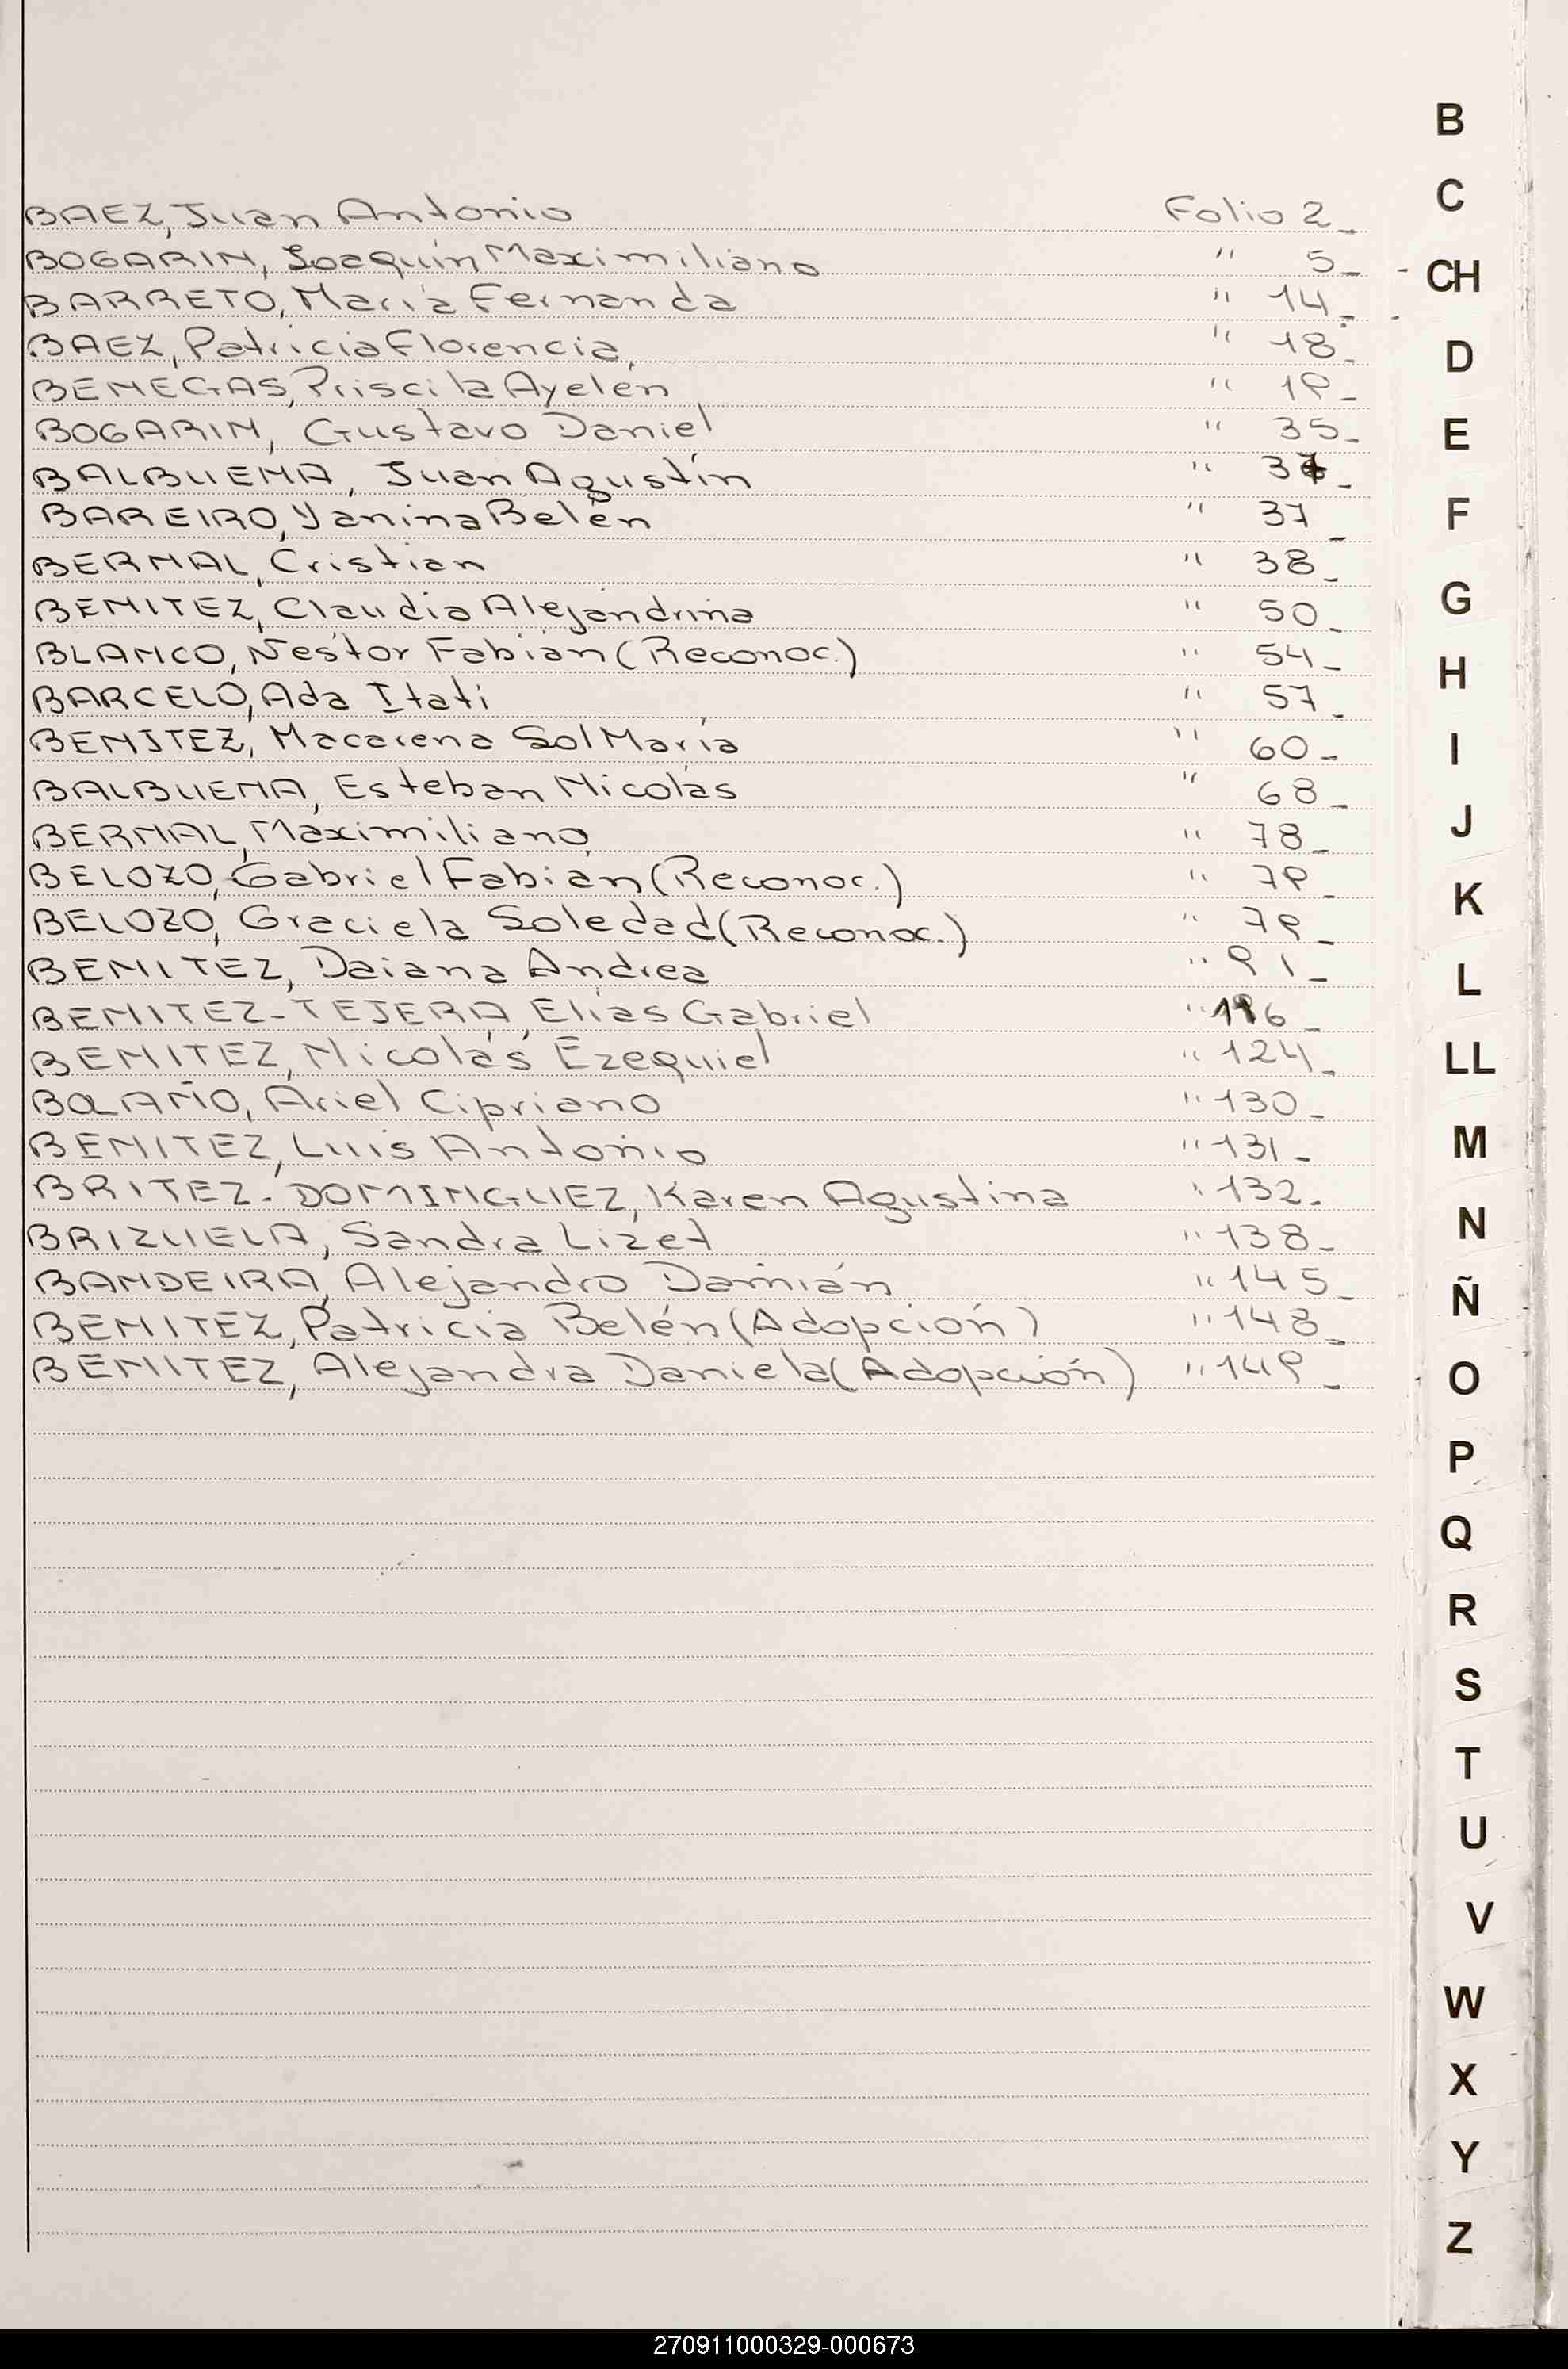 BAEZ, Juan Antonio Folio 2_
BOGARIN, Joaquín Maximiliano " 5_
BARRETO, María Fernanda " 14_
BAEZ, Patricia Florencia " 18_
BENEGAS, Priscila Ayelén " 19_
BOGARIN, Gustavo Daniel " 35_
BALBUENA, Juan Agustín "
BAREIRO, Yanina Belén " 37_
BERNAL, Cristian " 38_
BENITEZ, Claudia Alejandrina " 50_
BLANCO, Nestor Fabián (Reconoc.) " 54_
BARCELÓ, Ada Itati " 57_
BENITEZ, Macarena Sol María " 60_
BALBUENA, Esteban Nicolás " 68_
BERNAL, Maximiliano " 78_
BELOZO, Gabriel Fabián (Reconoc.) " 79_
BELOZO, Graciela Soledad (Reconoc.) " 79_
BENITEZ, Daiana Andrea " 91_
BENITEZ-TEJERA, Elías Gabriel "
BENITEZ, Nicolás Ezequiel " 124_
BOLAÑO, Ariel Cipriano " 130_
BENITEZ, Luis Antonio " 131_
BRITEZ-DOMINGUEZ, Karen Agustina " 132_
BRIZUELA, Sandra Lizet " 138_
BANDEIRA, Alejandro Damián " 145_
BENITEZ, Patricia Belén (Adopción) " 148_
BENITEZ, Alejandra Daniela (Adopción) " 149_
B
C
CH
D
E
F
G
H
I
J
K
L
LL
M
N
Ñ
O
P
Q
R
S
T
U
V
W
X
Y
Z
270911000329-000673